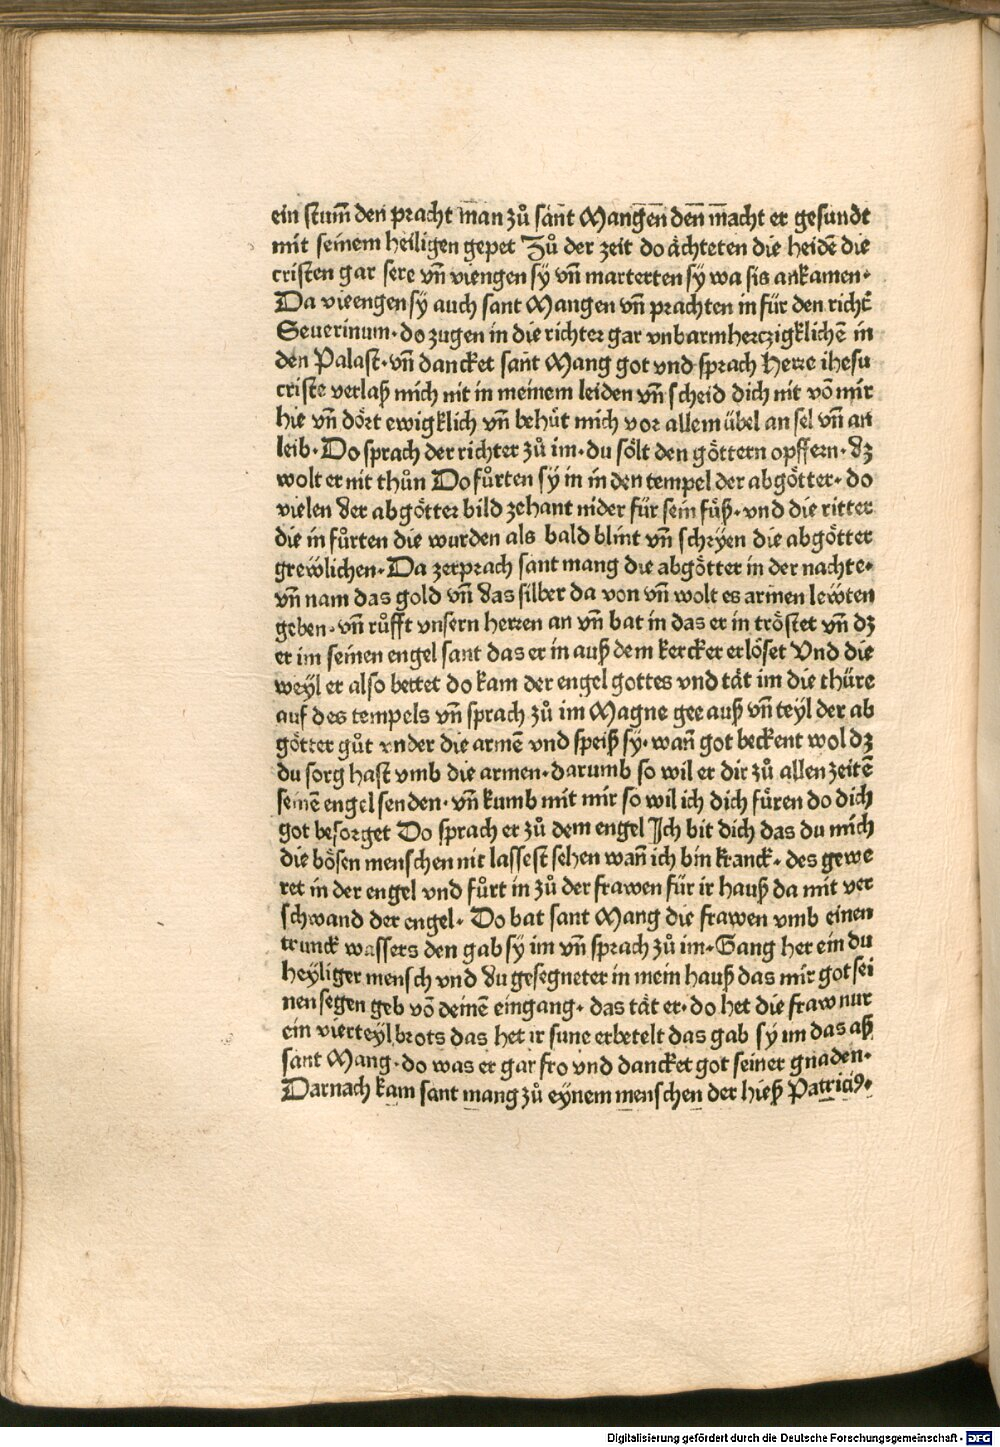 ein stum̃ den pracht man zů sant Mangen den macht er gesundt
mit seinem heiligen gepet Zů der zeit do ächteten die heidẽ die
cristen gar sere vñ viengen sy̆ vñ marterten sy̆ wa sis ankamen·
Da viengen sy̆ auch sant Mangen vñ prachten in für den richt̃
Seuerinum· do zugen in die richter gar vnbarmherczigklichẽ in
den Palast· vñ dancket sant Mang got vnd sprach Herre ihesu
criste verlaß mich nit in meinem leiden vñ scheid dich nit võ mir
hie vñ dört ewigklich vñ behüt mich vor allem übel an sel vñ an
leib· Do sprach der richter zů im· du sölt den göttern opffern· dz
wolt er nit thůn Do fůrten sy̆ in in den tempel der abgötter· do
vielen der abgötter bild zehant nider für sein füß· vnd die ritter
die in fůrten die wurden als bald blint vñ schry̆en die abgötter
grewlichen· Da zerprach sant mang die abgötter in der nachte·
vñ nam das gold vñ das silber da von vñ wolt es armen lewten
geben· vñ růfft vnsern herren an vñ bat in das er in tröstet vñ dz
er im seinen engel sant das er in auß dem kercker erlöset Vnd die
wey̆l er also bettet do kam der engel gottes vnd tät im die thüre
auf des tempels vñ sprach zů im Magne gee auß vñ tey̆l der ab
götter gůt vnder die armẽ vnd speiß sy̆· wañ got beckent wol dz
du sorg hast vmb die armen· darumb so wil er dir zů allen zeitẽ
seinẽ engel senden· vñ kumb mit mir so wil ich dich füren do dich
got besorget Do sprach er zů dem engel Ich bit dich das du mich
die bösen menschen nit lassest sehen wañ ich bin kranck· des gewe
ret in der engel vnd fůrt in zů der frawen für ir hauß da mit ver
schwand der engel· Do bat sant Mang die frawen vmb einen
trunck wassers den gab sy̆ im vñ sprach zů im· Gang her ein du
hey̆liger mensch vnd du gesegneter in mein hauß das mir got sei
nen segen geb võ deinẽ eingang· das tät er· do het die fraw nur
ein viertey̆l brots das het ir sune erbetelt das gab sy̆ im das aß
sant Mang· do was er gar fro vnd dancket got seiner gnaden·
Darnach kam sant mang zů ey̆nem menschen der hieß Patriciꝰ·
Digitalisierung gefördert durch die Deutsche Forschungsgemeinschaft - DFG